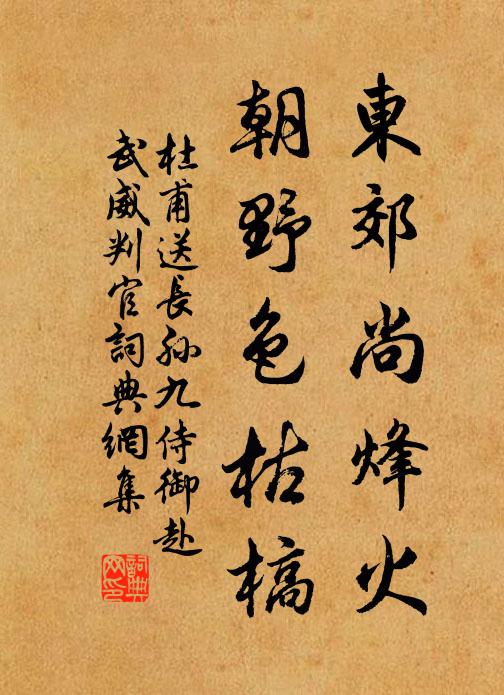 東郊尚烽火
朝野色枯槁
杜甫送長孫九侍御赴
武威判官詞典網集
詞典
网印